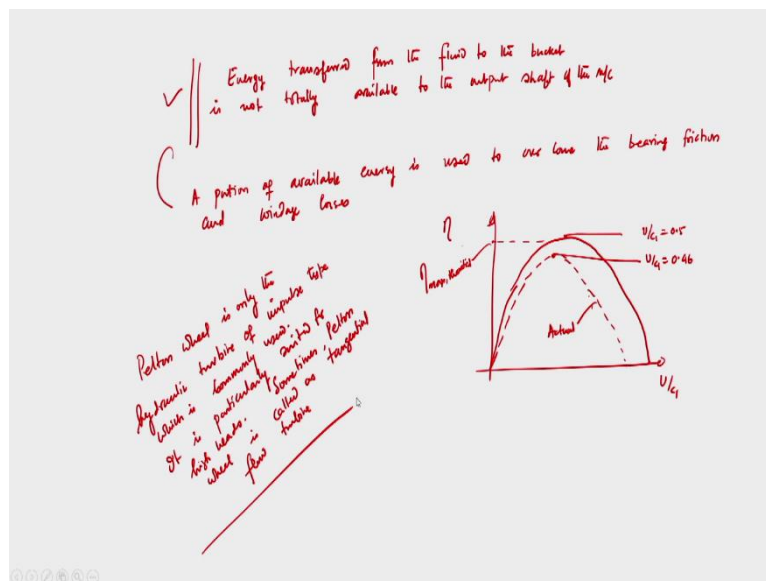 Energy transferred from the fluid to the bucket
is not totally available to the output shaft of the m/c
A portion of available energy is used to over come the bearing friction
and windage losses
η
η max, theoretical
U/c₁ = 0.5
U/c₁ = 0.46
Actual
U/c₁
Pelton wheel is only the
hydraulic turbine of impulse type
which is commonly used.
It is particularly suited for
high heads. Sometimes, Pelton
wheel is called as tangential
flow turbine